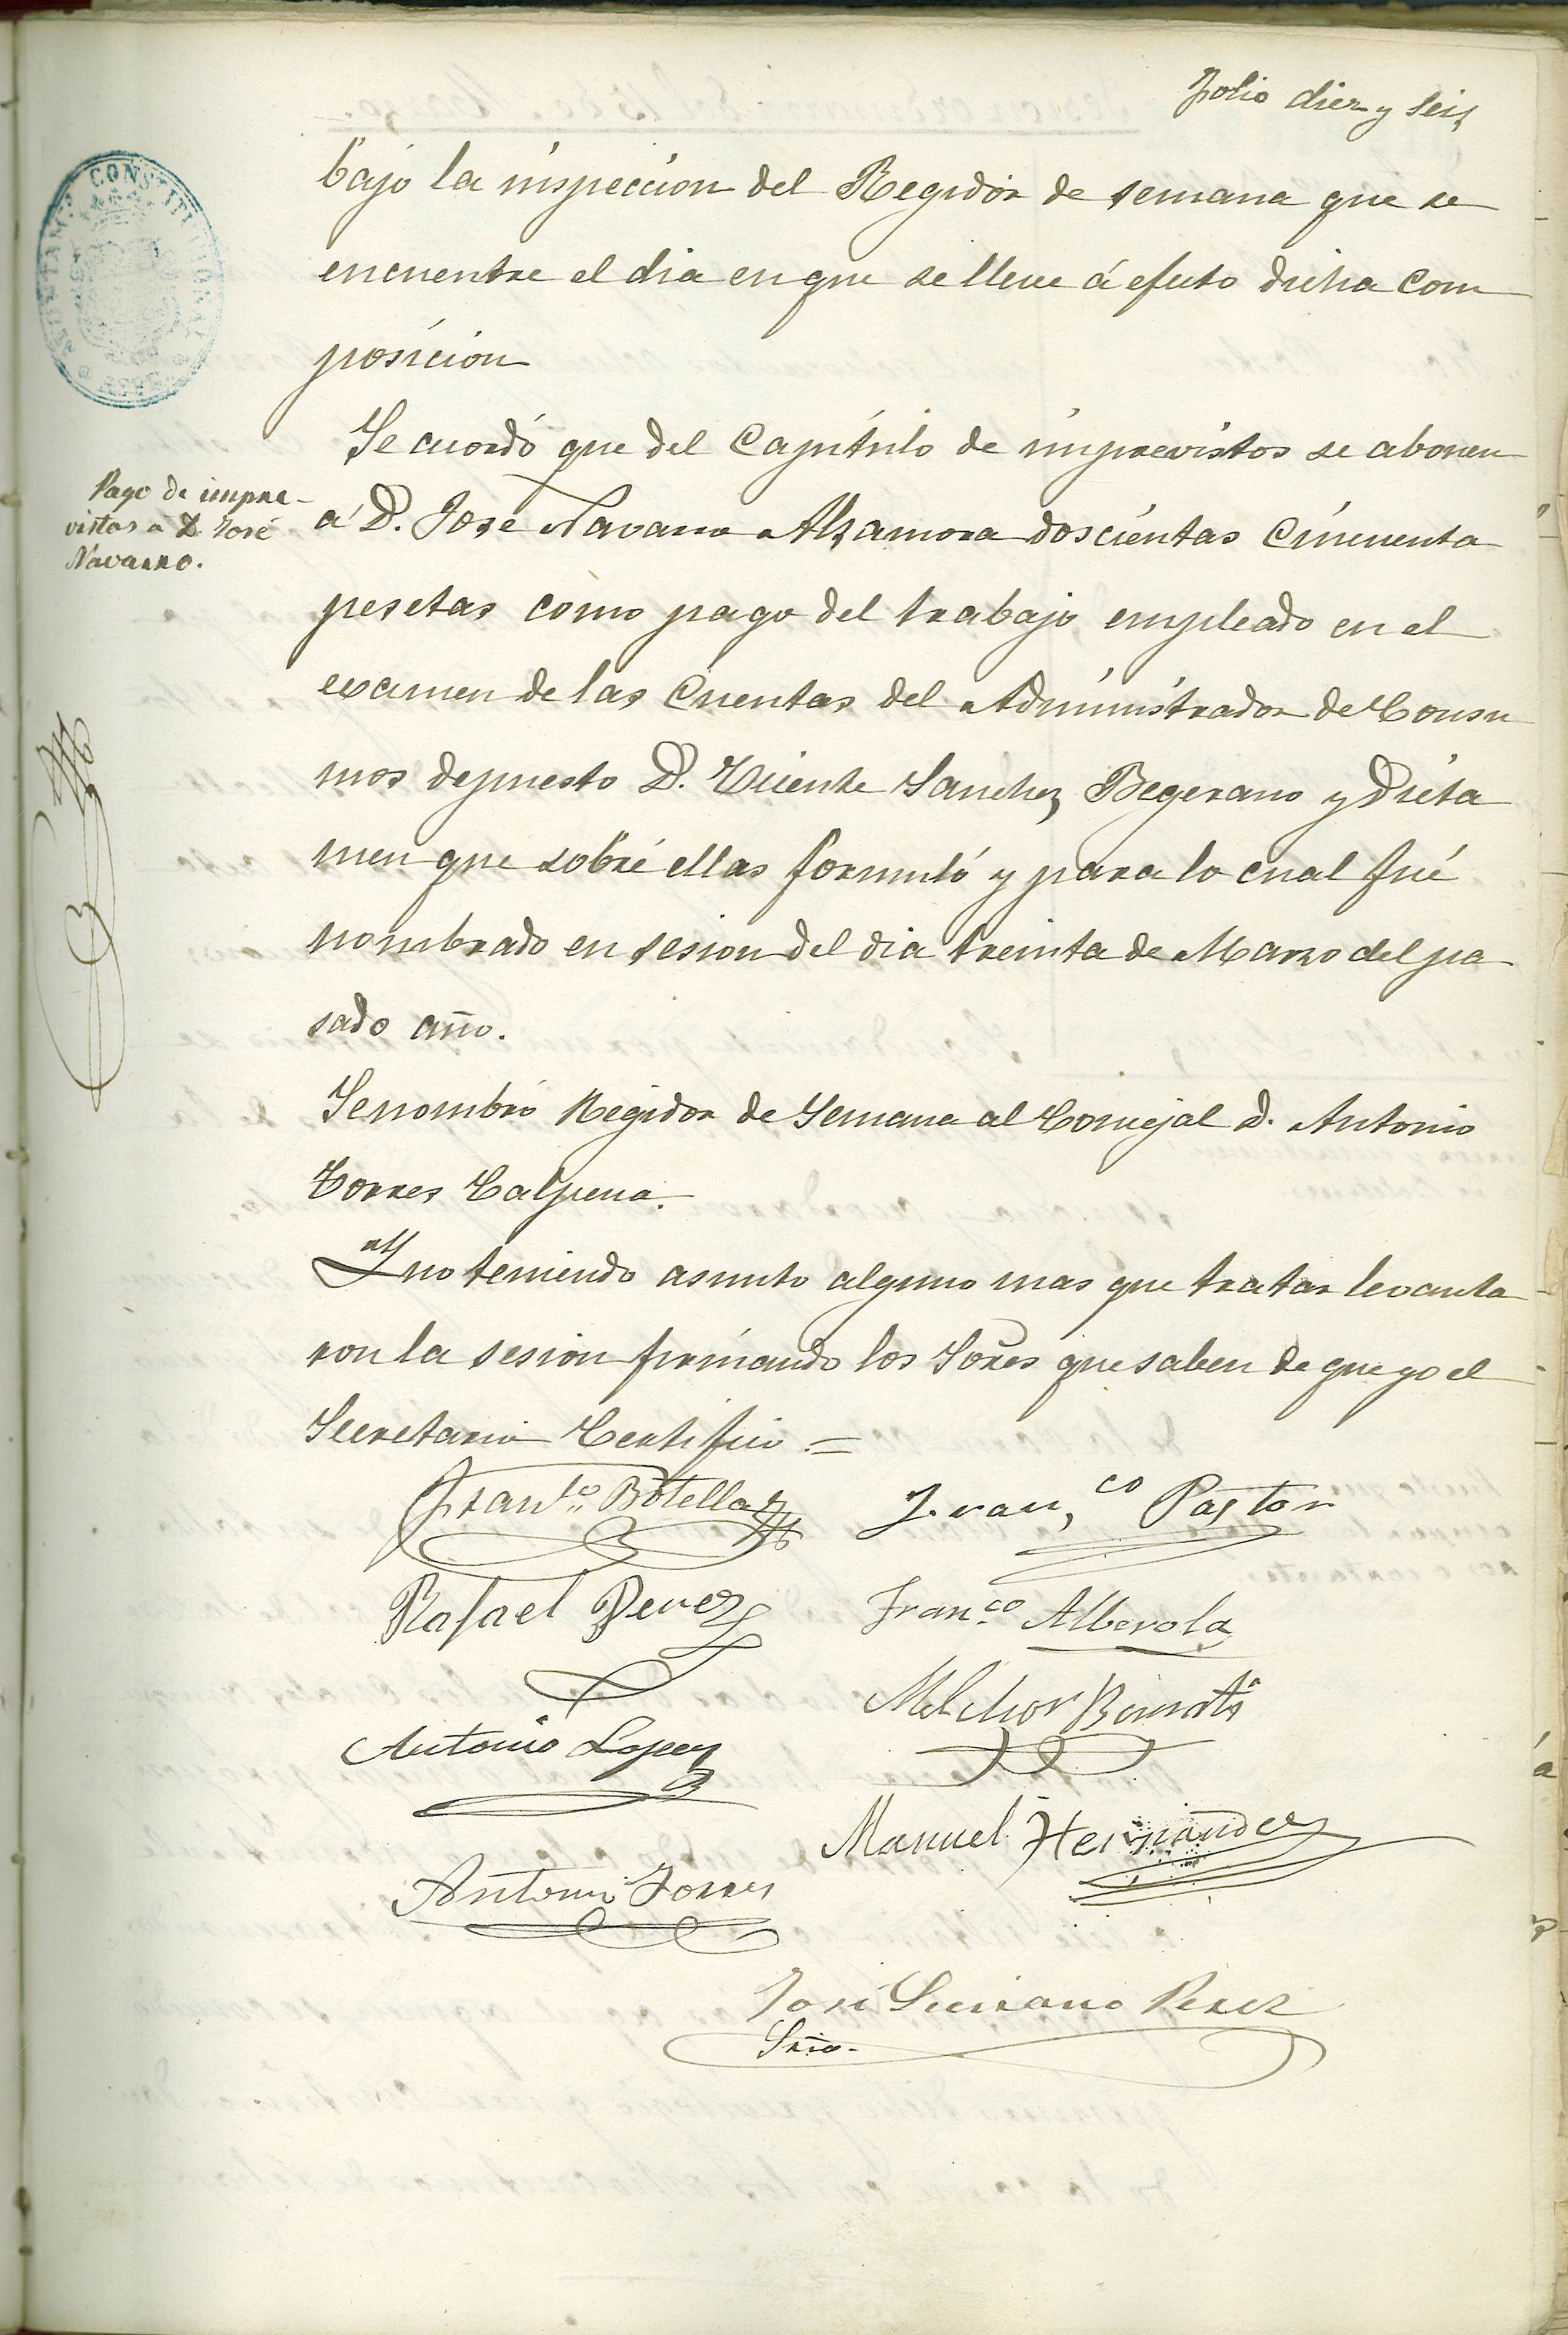 Folio diez y seis
bajo la inspeccion del Regidor de semana que se
encuentre el dia en que se lleve á efecto dicha com
posicion
Se acordó que del Capítulo de imprevistos se abonen
Pago de impre-
vistos a D. José
Navarro.
á D. José Navarro Alzamora doscientas cincuenta
pesetas como pago del trabajo empleado en el
examen de las Cuentas del Administrador de Consu
mos depuesto D. Vicente Sanchez Begerano y dicta
men que sobre ellas formuló y para lo cual fué
nombrado en sesion del dia treinta de Marzo del pa
sado año.
Se nombró Regidor de Semana al Concejal D. Antonio
Torres Calpena.
Y no teniendo asunto alguno mas que tratar levanta
ron la sesion firmando los Sores que saben de que yo el
Secretario Certifico =
Franco Botella
Franco Pastor
Rafael Perez
Franco Alberola
Antonio Lopez
Melchor
Manuel Hernandez
Antonio Torres
José Perez
Srio.
CONSTITUCIONAL